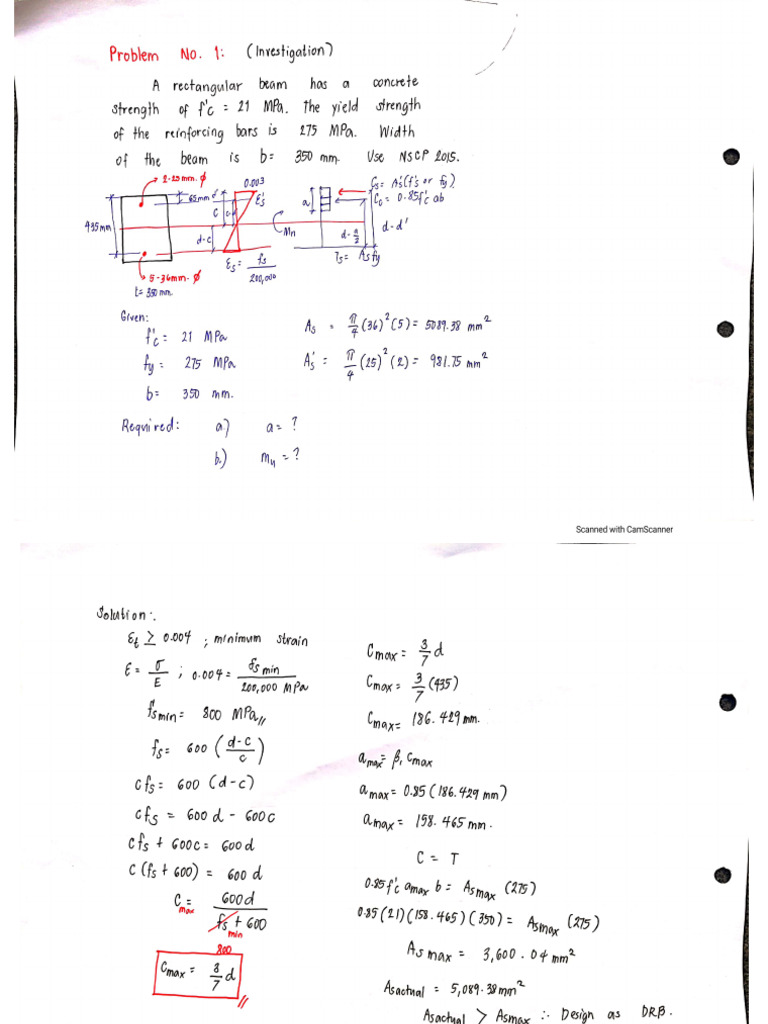 Problem No. 1: (Investigation)
A rectangular beam has a concrete
strength of f'c = 21 MPa. The yield strength
of the reinforcing bars is 275 MPa. Width
of the beam is b= 350 mm. Use NSCP 2015.
2-25mm. ϕ
65mm d'
0.003
Cs= As'(f's or fy)
εs'
a
Cc = 0.85f'c ab
c
435mm
Mn
d-a/2
d-d'
d-c
εs = fs/200,000
Ts= As fy
5-36mm. ϕ
t= 350 mm.
Given:
f'c = 21 MPa
As = π/4 (36)²(5) = 5089.38 mm²
fy = 275 MPa
As' = π/4 (25)²(2) = 981.75 mm²
b= 350 mm.
Required: a.) a= ?
b.) mu = ?
Scanned with CamScanner
Solution:.
εt ≥ 0.004 ; minimum strain
ε = σ/E ; 0.004 = fs min/200,000 MPa
fsmin = 800 MPa//
fs= 600 (d-c/c)
cfs = 600 (d-c)
cfs = 600d - 600c
cfs + 600c = 600d
c (fs + 600) = 600 d
Cmax = 600d/fs min + 600
800
Cmax = 3/7 d //
Cmax = 3/7 d
Cmax = 3/7 (435)
Cmax = 186.429 mm.
amax = β1 Cmax
amax = 0.85 (186.429 mm)
amax = 158.465 mm.
C = T
0.85f'c amax b = Asmax (275)
0.85(21)(158.465)(350) = Asmax (275)
As max = 3,600.04 mm²
Asactual = 5,089.38mm²
Asactual > Asmax ∴ Design as DRB.